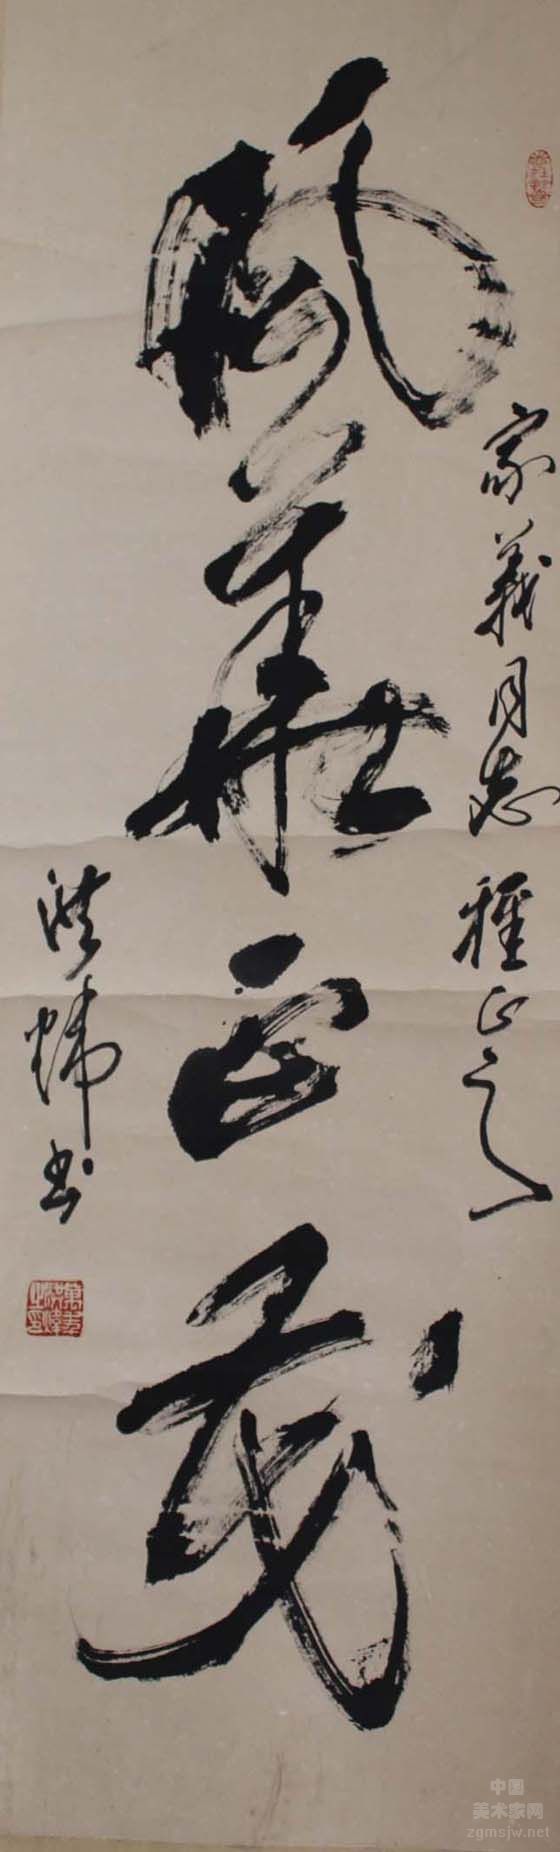 家义同志雅正之
风华正茂
洪炜书
中国
美术家网
zgmsjw.net